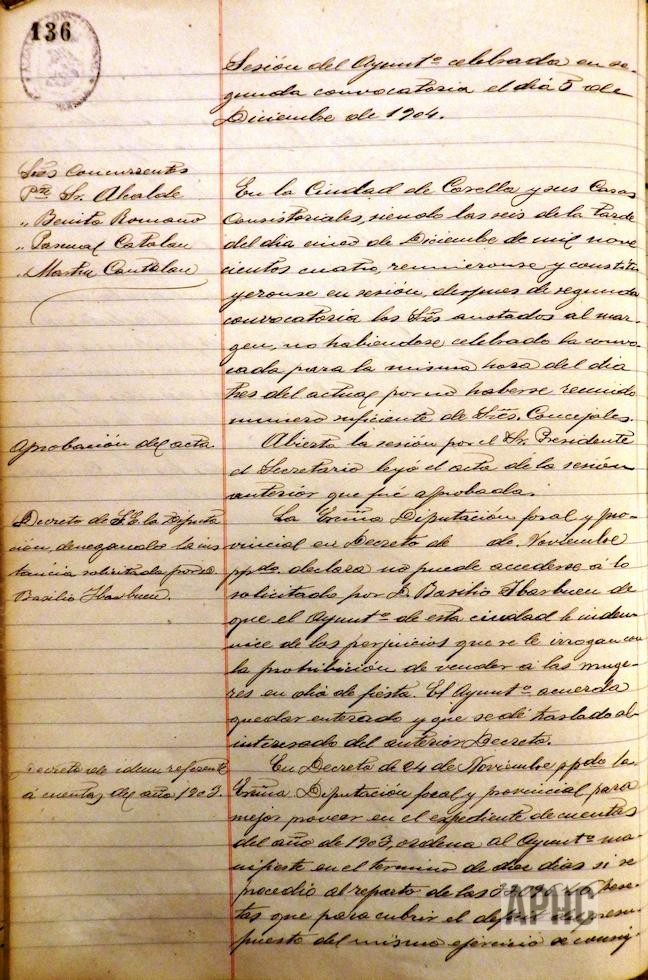 136
Sesión del Ayuntº celebrada en se-
gunda convocatoria el dia 5 de
Diciembre de 1904.
Sres Concurrentes
Pte Sr. Alcalde
" Benito Romano
" Pascual Catalan
" Martin Catalan
En la Ciudad de Corella y sus Casas
Consistoriales, siendo las seis de la tarde
del dia cinco de Diciembre de mil nove
cientos cuatro, reunieronse y constitu
yeronse en sesión, despues de segunda
convocatoria los Sres anotados al mar-
gen, no habiendose celebrado la convo-
cada para la misma hora del dia
tres del actual por no haberse reunido
numero suficiente de Sres. Concejales.
Aprobación del acta
Abierta la sesión por el Sr. Presidente
el Secretario leyó el acta de la sesión
anterior que fué aprobada.
Decreto de S.E. la Diputa
ción, denegando la ins
tancia solicitada por D.
Basilio Ibarbuen.
La Excma Diputación foral y pro-
vincial en Decreto de de Noviembre
ppdo. declara no puede accederse á lo
solicitado por D. Basilio Ibarbuen de
que el Ayuntº de esta ciudad le indem-
nice de los perjuicios que se le irrogan con
la prohibición de vender á las muge-
res en dia de fiesta. El Ayuntº acuerda
quedar enterado y que se dé traslado al
interesado del anterior Decreto.
Decreto de idem referente
á cuentas del año 1903.
En Decreto de 24 de Noviembre ppdo la
Excma Diputación foral y provincial para
mejor proveer en el expediente de cuentas
del año de 1903, ordena al Ayuntº ma-
nifieste en el termino de diez dias si se
procedió al reparto de las pese-
tas que para cubrir el deficit del presu-
puesto del mismo ejercicio se consig-
APHC